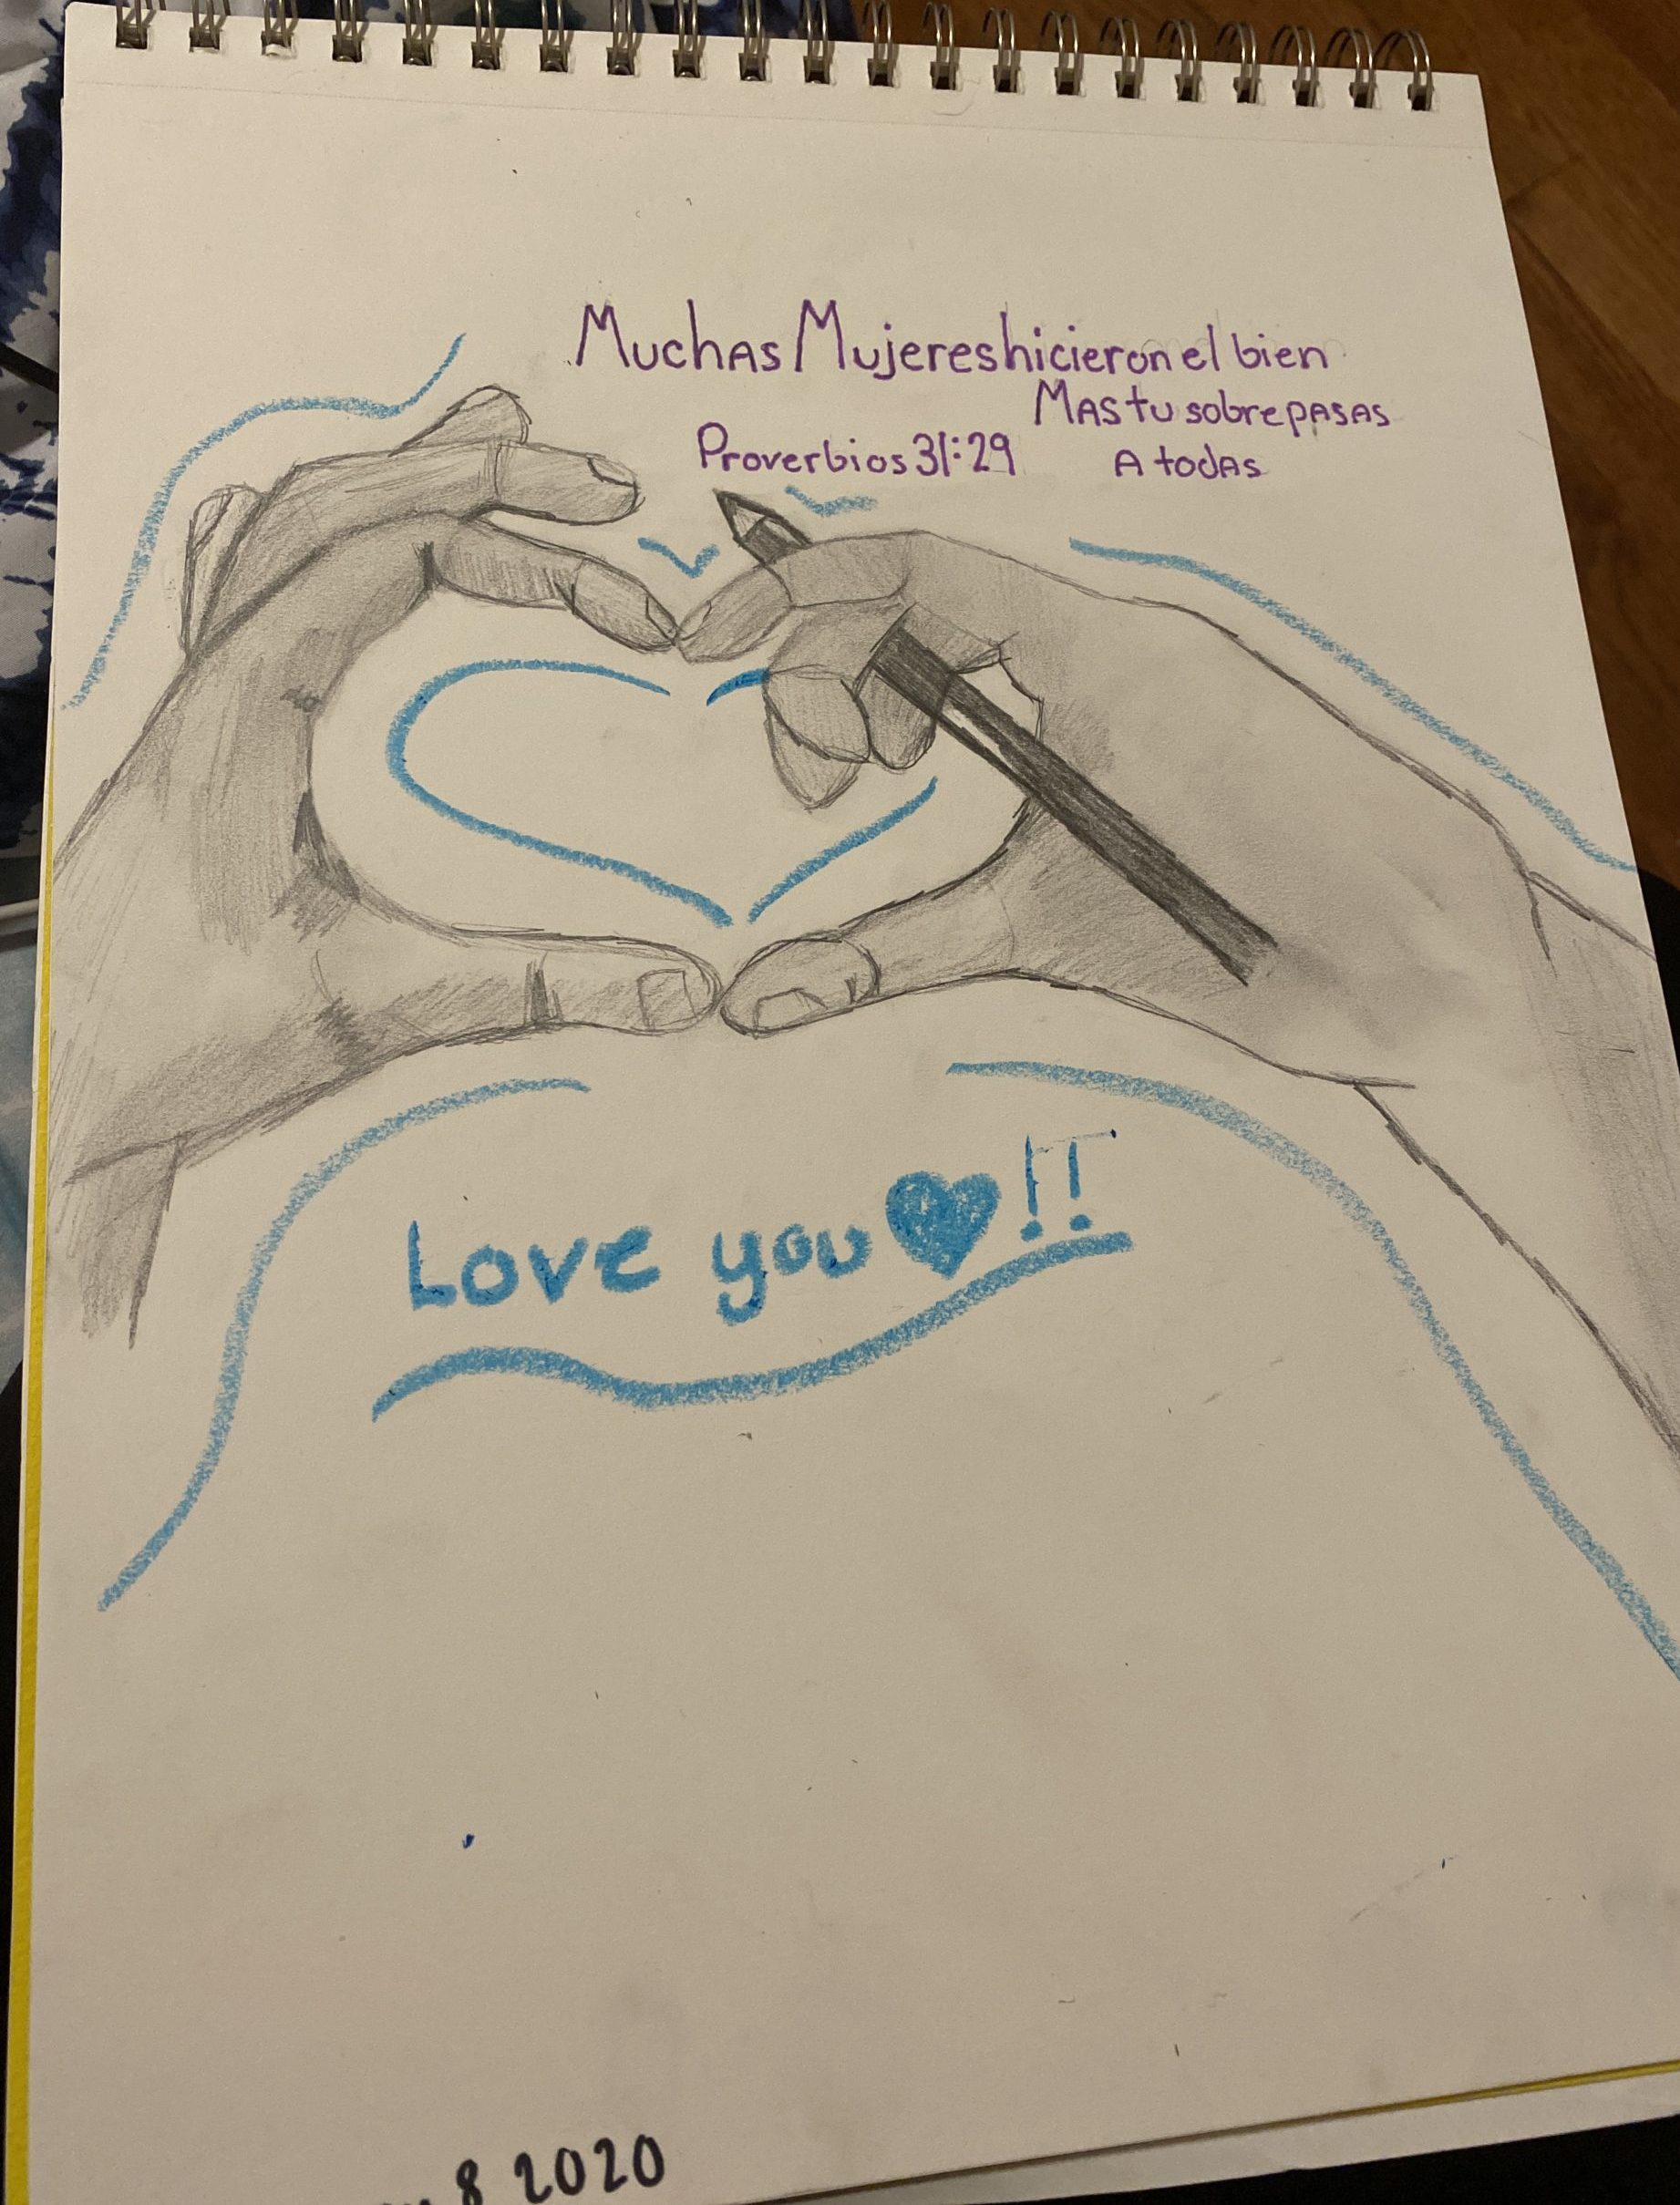 Muchas Mujeres hicieron el bien
Mas tu sobrepasas
A todas
Proverbios 31:29
Love you ♥!!
8 2020